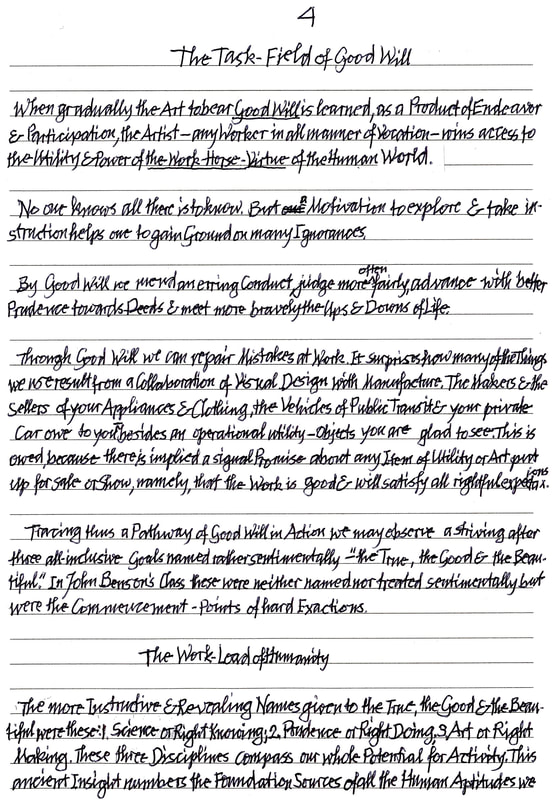 4
The Task-Field of Good Will
When gradually the Art to bear Good Will is learned, as a Product of Endeavor
& Participation, the Artist – any Worker in all manner of Vocation – wins access to
the Utility & Power of the Work-Horse-Virtue of the Human World.
No one knows all there is to know. But a Motivation to explore & take in-
struction helps one to gain Ground on many Ignorances.
By Good Will we mend an erring Conduct, judge more often fairly, advance with better
Prudence towards Deeds & meet more bravely the Ups & Downs of Life.
Through Good Will we can repair Mistakes at Work. It surprises how many of the Things
we use result from a Collaboration of Visual Design with Manufacture. The Makers & the
Sellers of your Appliances & Clothing, the Vehicles of Public Transit & your private
Car owe to you besides an operational utility – Objects you are glad to see. This is
owed, because there is implied a signal Promise about any Item of Utility or Art put
up for sale or Show, namely, that the Work is good & will satisfy all rightful expectations.
Tracing thus a Pathway of Good Will in Action we may observe a striving after
three all-inclusive Goals named rather sentimentally – "the True, the Good & the Beau-
tiful." In John Benson's Class these were neither named nor treated sentimentally but
were the Commencement-Points of hard Exactions.
The Work-Load of Humanity
The more Instructive & Revealing Names given to the True, the Good & the Beau-
tiful were these: 1, Science or Right Knowing; 2, Prudence or Right Doing, 3, Art or Right
Making. These three Disciplines compass our whole Potential for Activity. This
ancient Insight numbers the Foundation Sources of all the Human Aptitudes we